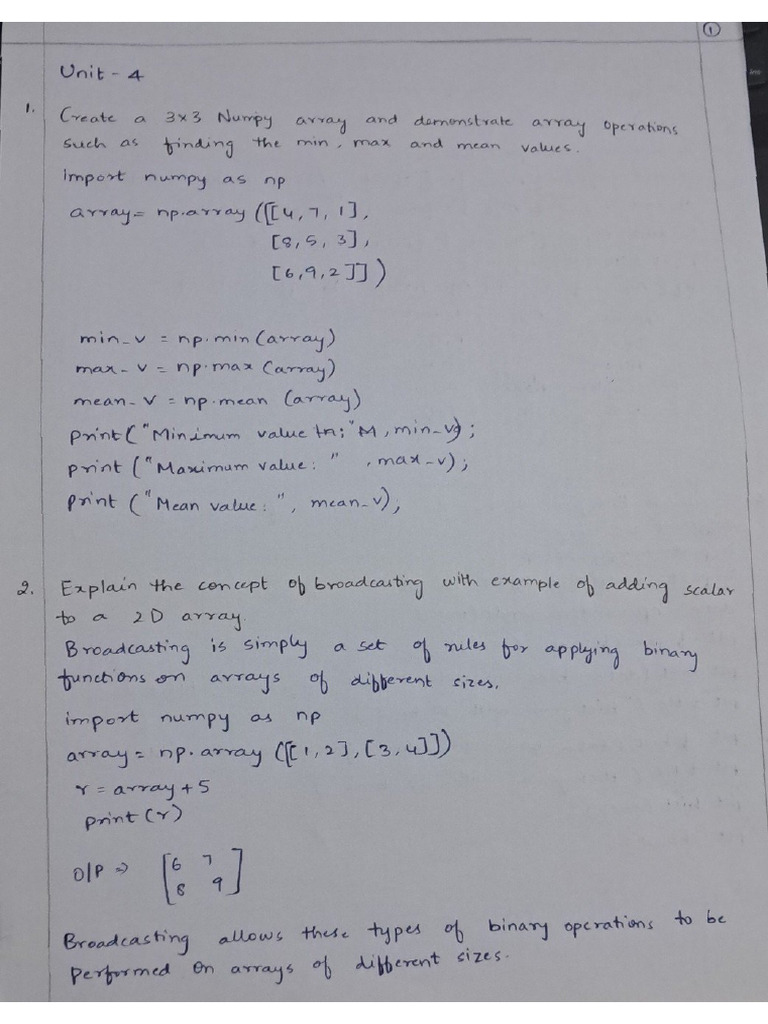 1
Unit - 4
1. Create a 3x3 Numpy array and demonstrate array operations
such as finding the min, max and mean values.
import numpy as np
array = np.array([[4, 7, 1],
[8, 5, 3],
[6, 9, 2]])
min_v = np.min(array)
max_v = np.max(array)
mean_v = np.mean (array)
print("Minimum value , min_v);
print ("Maximum value: " , max_v);
print ("Mean value: ", mean_v);
2. Explain the concept of broadcasting with example of adding scalar
to a 2D array
Broadcasting is simply a set of rules for applying binary
functions on arrays of different sizes.
import numpy as np
array = np.array ([[1, 2], [3, 4]])
r = array + 5
print (r)
O/P => [6 7
8 9]
Broadcasting allows these types of binary operations to be
performed on arrays of different sizes.